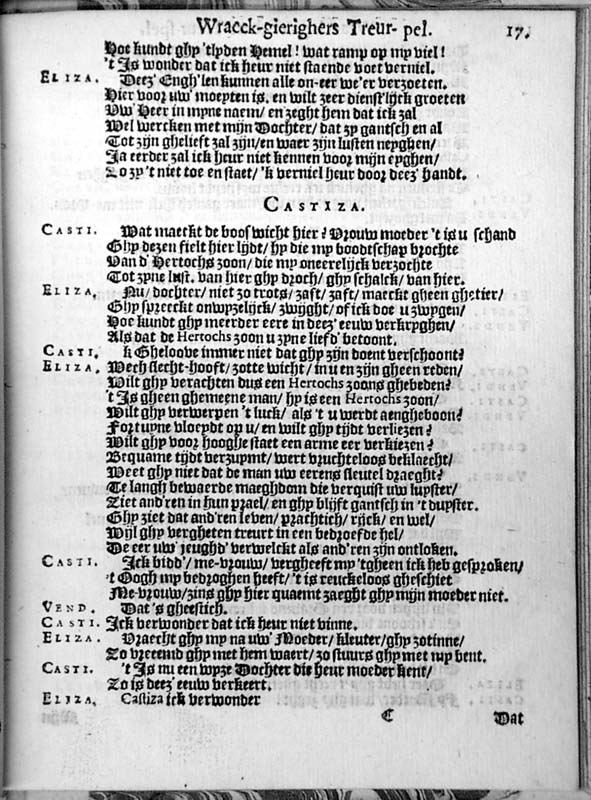 Wraeck-gierighers Treur-spel. 17.
Hoe kundt ghy 'tlyden Hemel! wat ramp op my viel!
't Is wonder dat ick heur niet staende voet verniel.
ELIZA. Deez' Engh'len kunnen alle on-eer we'er verzoeten.
Hier voor uw' moeyten is. en wilt zeer dienst'lijck groeten
Vw' Heer in myne naem/ en zeght hem dat ick zal
Wel wercken met mijn Dochter/ dat zy gantsch en al
Tot zijn ghelieft zal zijn/ en waer zijn lusten neyghen/
Ja eerder zal ick heur niet kennen voor mijn eyghen/
Zo zy't niet toe en staet/ 'k verniel heur door deez' handt.
CASTIZA.
CASTI. Wat maeckt de boos wicht hier? Vrouw moeder 't is u schand
Ghy dezen fielt hier lijdt/ hy die my boodtschap brochte
Van d' Hertochs zoon/ die my oneerelijck verzochte
Tot zyne lust. van hier ghy droch/ ghy schalck/ van hier.
ELIZA. Nu/ dochter/ niet zo trots/ zaft/ zaft/ maeckt gheen ghetier/
Ghy spreeckt onwyzelijck/ zwyght/ of ick doe u zwygen/
Hoe kundt ghy meerder eere in deez' eeuw verkryghen/
Als dat de Hertochs zoon u zyne liefd' betoont.
CASTI. k Gheloove immer niet dat ghy zijn doent verschoont?
ELIZA. Wech slecht-hooft/ zotte wicht/ in u en zijn gheen reden/
Wilt ghy verachten dus een Hertochs zoons ghebeden?
't Is gheen ghemeyne man/ hy is een Hertochs zoon/
Wilt ghy verwerpen 't luck/ als 't u werdt aengheboon?
Fortuyne vloeydt op u/ en wilt ghy tijdt verliezen?
Wilt ghy voor hooghe staet een arme eer verkiezen?
Bequame tijdt verzuymt/ wert vruchteloos beklaecht/
Weet ghy niet dat de man uw eerens sleutel draeght?
Te langh bewaerde maeghdom die verquist uw luyster/
Ziet and'ren in hun prael/ en ghy blijft gantsch in 't duyster.
Ghy ziet dat and'ren leven/ prachtich/ rijck/ en wel/
Wijl ghy vergheten treurt in een bedroefde hel/
De eer uw' jeughd' verwelckt als and'ren zijn ontloken.
CASTI. Ick bidd'/ me-vrouw/ vergheeft my 'tgheen ick heb gesproken/
't Oogh my bedroghen heeft/ 't is reuckeloos gheschiet
Me-vrouw/ zins ghy hier quaemt zaeght ghy mijn moeder niet.
VEND. Dat 's gheestich.
CASTI. Ick verwonder dat ick heur niet vinne.
ELIZA. Vraecht ghy my na uw' Moeder/ kleuter/ ghy zotinne/
Zo vreemd ghy met hem waert/ zo stuurs ghy met my bent.
CASTI. 't Is nu een wyze Dochter die heur moeder kent/
Zo is deez' eeuw verkeert.
ELIZA. Castiza ick verwonder
C Dat